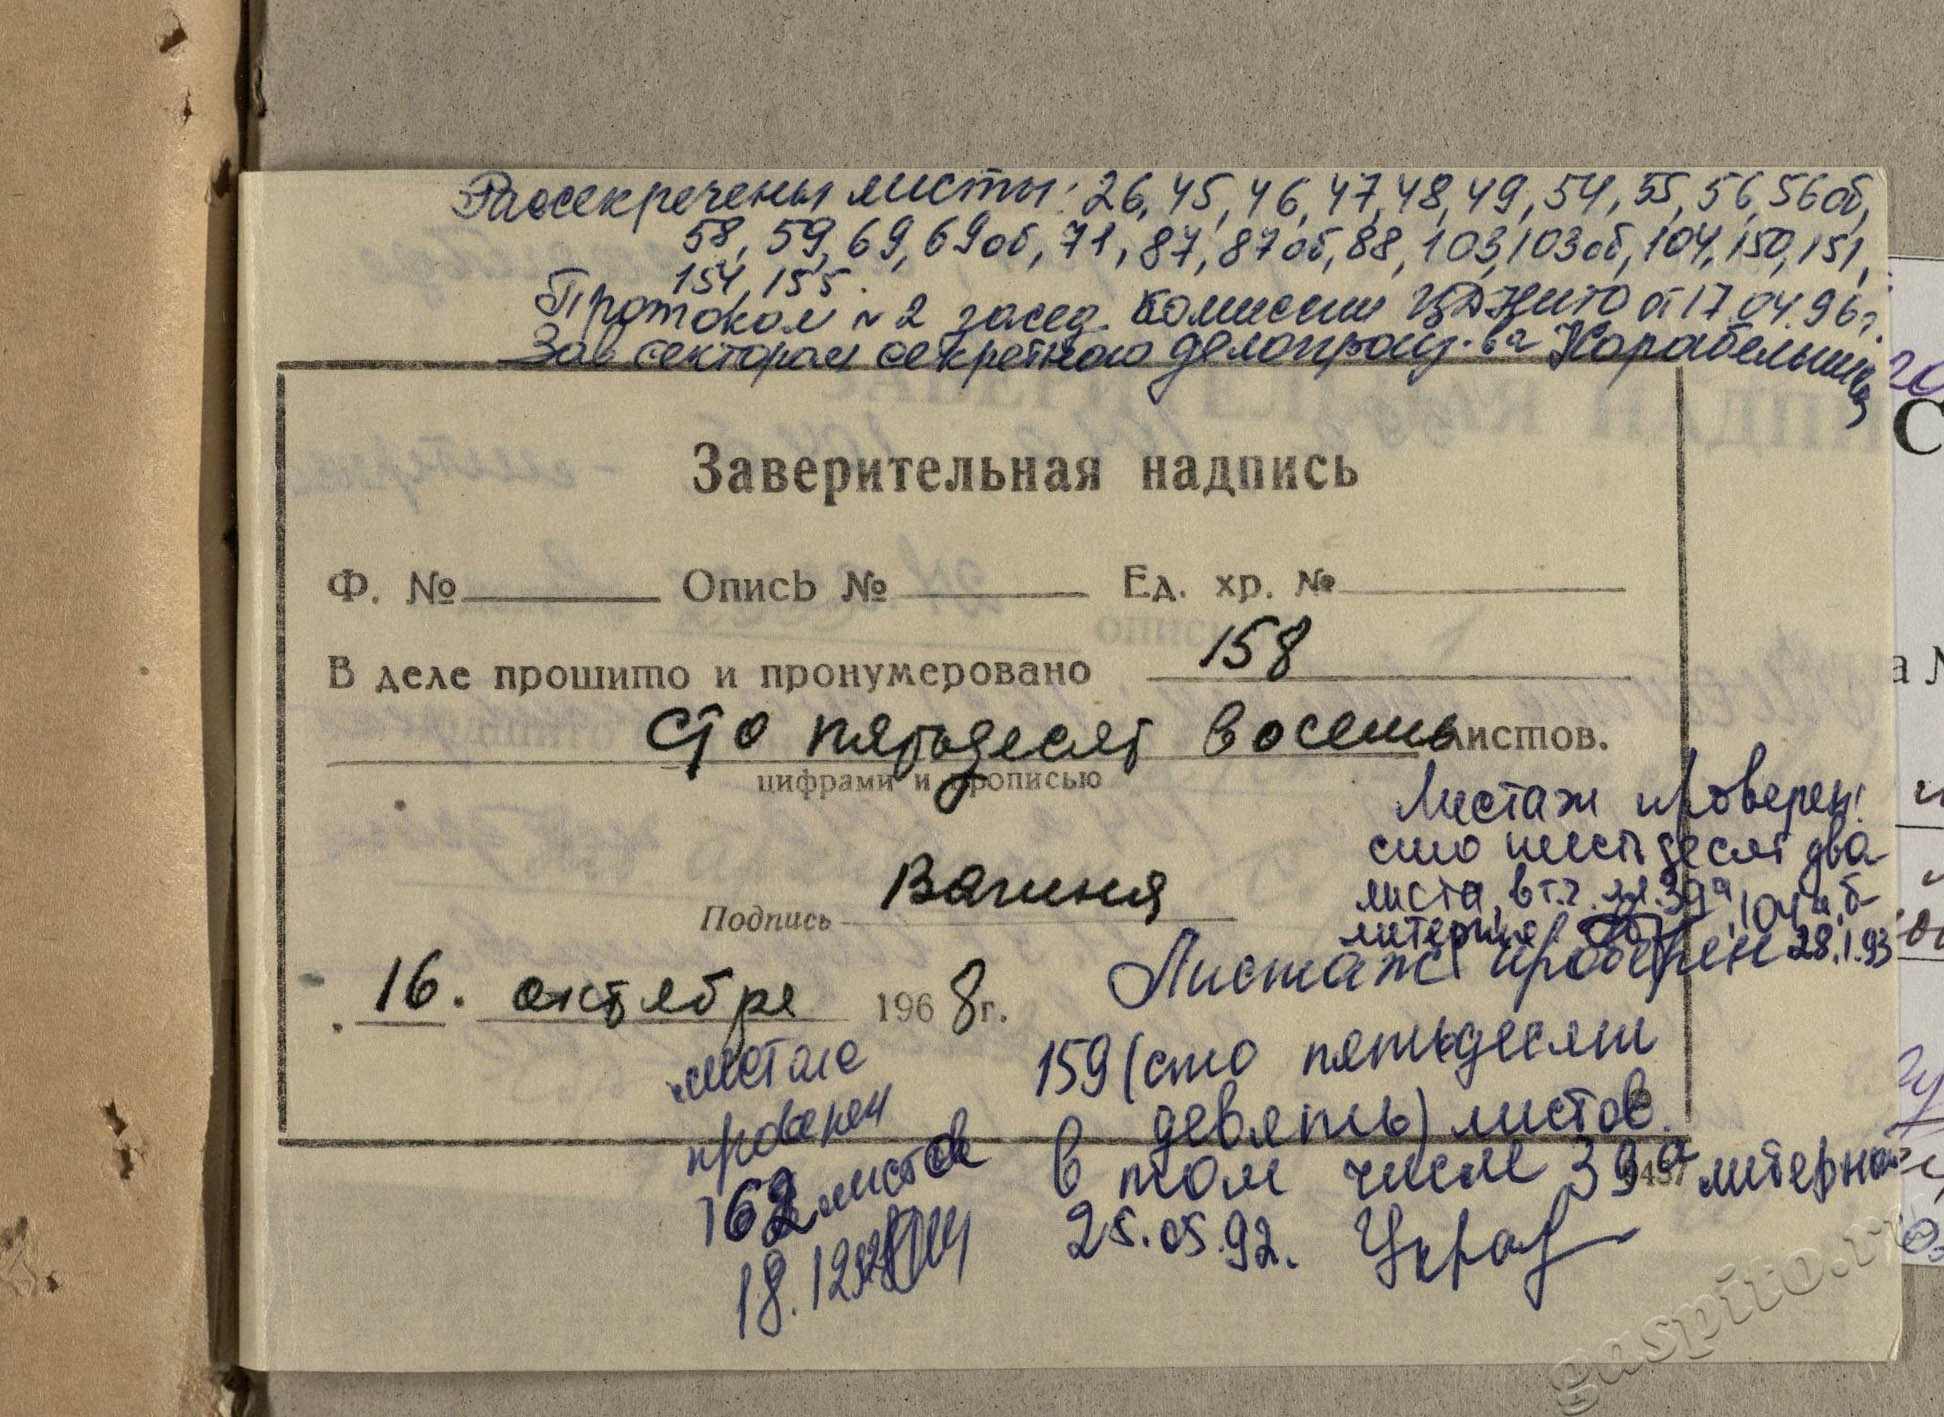 Рассекречены листы: 26, 45, 46, 47, 48, 49, 54, 55, 56, 56об,
58, 59, 69, 69об, 71, 87, 87об, 88, 103, 103об, 104, 150, 151,
154, 155.
Протокол № 2 засед. комиссии ЦДНИТО от 17.04.96г.
Зав сектором секретного делопроиз-ва
Заверительная надпись
Ф. № Опись № Ед. хр. №
В деле прошито и пронумеровано 158
сто пятьдесят восемь листов.
цифрами и прописью
Подпись Вагина
16. октября 1968г.
Листаж проверен:
сто шестьдесят два
листа, в т.ч. лл. 39а, 104а,б
литерные
28.1.93
Листаж проверен
159 (сто пятьдесят
девять) листов.
в том числе 39а литерной
25.05.92.
листаж
проверен
162 листов
gaspito.ru